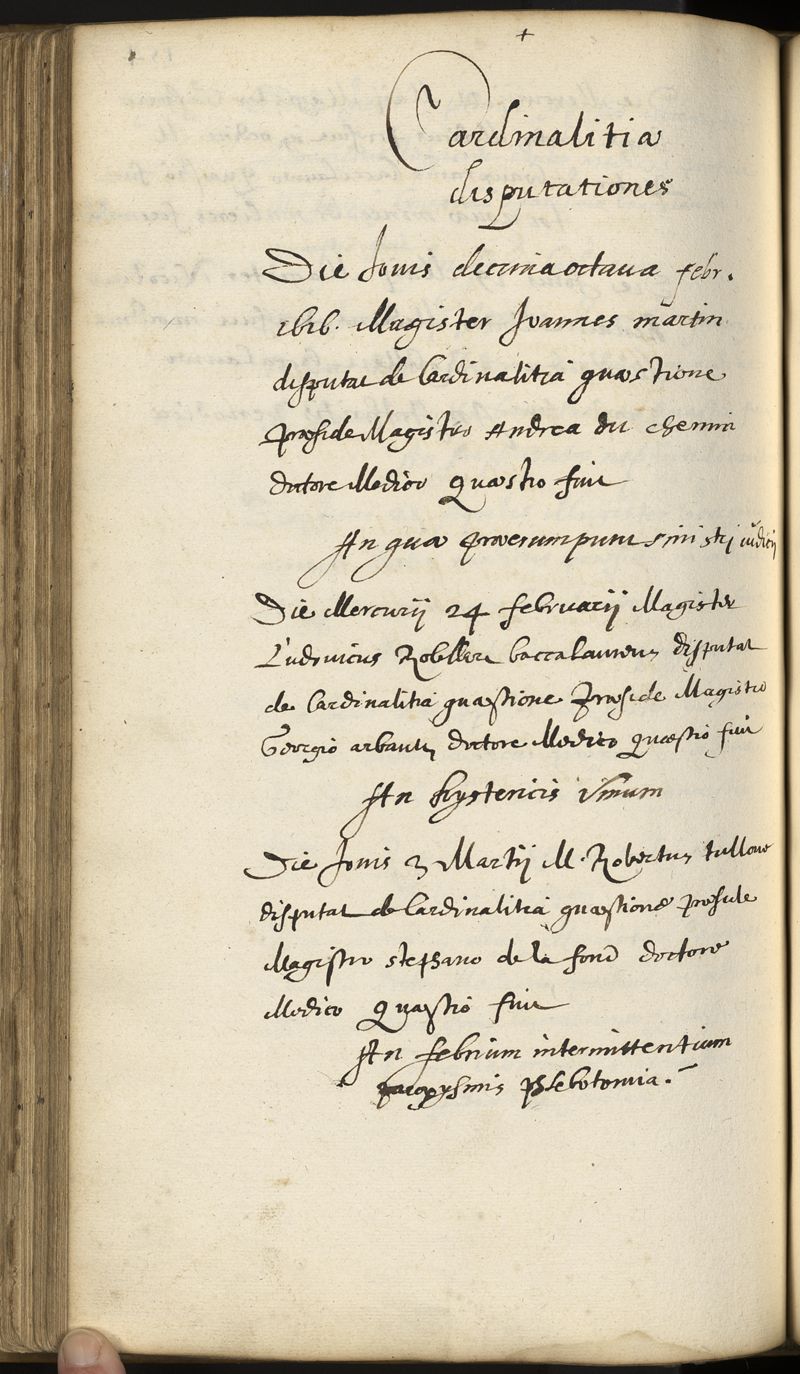 Cardinalitia
disputationes
Die Jouis decima octaua febr.
1616. Magister Joannes martin
disputat de Cardinalitia quæstione
præside Magistro Andrea du chemin
doctore Medico Quæstio fuit
An quæ præerumpunt sinistri iudicij
Die Mercurij 24 februarij Magister
Ludovicus baccalaureus disputat
de Cardinalitia quæstione Præside Magistro
Georgio doctore Medico Quæstio fuit
An hystericis vinum
Die Jouis 3 Martij M. Robertus tulloue
disputat de Cardinalitia quæstione præside
Magistro stephano de la font doctore
Medico Quæstio fuit
An febrium intermittentium
paroxysmis phlebotomia.